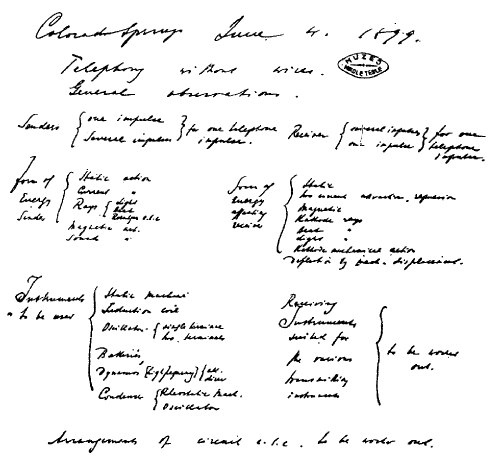 Colorado Springs June 4. 1899.
MUZEJ
NIKOLE TESLE
Telephony without wires.
General observations.
Senders { one impulse } for one telephone
{ several impulses } impulse.
Receiver { several impulses } for one
{ one impulse } telephone
impulse.
form of
Energy
Sender
{ Static action
Current "
Rays { light
heat
Röntgen e.t.c
Magnetic act.
Sound "
Form of
Energy
affecting
receiver
{ Static
two current attraction, repulsion
Magnetic
Kathode rays
Heat "
Light "
Kathode mechanical action
Deflection by displacement.
Instruments
to be used
{ Static machine
Induction coil
Oscillator { single terminal
two terminals
Batteries,
Dynamos (high frequency) { alt.
direct
Condenser { Rheostatic Mach.
Oscillator
Receiving
Instruments
suited for
the various
transmitting
instruments
} to be worked
out.
Arrangements of circuit e.t.c. to be worked out.